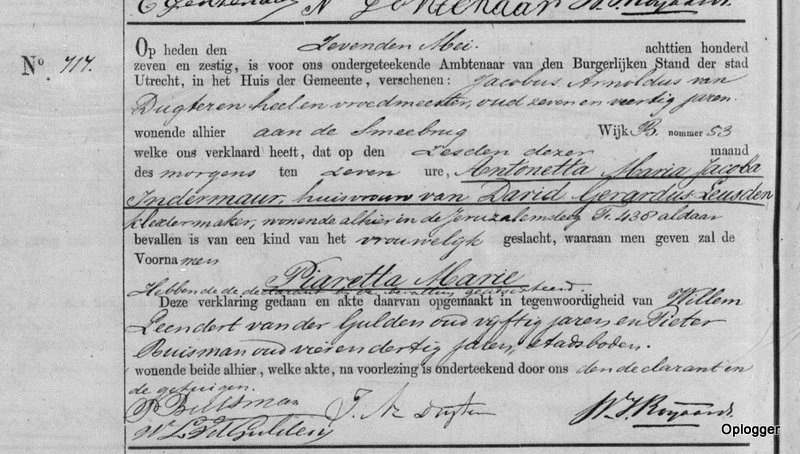 N Pontenaar
Nº. 717.
Op heden den Zevenden Mei. achttien honderd
zeven en zestig, is voor ons ondergeteekende Ambtenaar van den Burgerlijken Stand der stad
Utrecht, in het Huis der Gemeente, verschenen: Jacobus Arnoldus van
Dugteren heel en vroedmeester, oud zeven en veertig jaren.
wonende alhier aan de Smeebrug Wijk B. nommer 53
welke ons verklaard heeft, dat op den Zesden dezer maand
des morgens ten zeven ure, Antonetta Maria Jacoba
Indermaur, huisvrouw van David Gerardus Leusden
kleedermaker, wonende alhier in de Jeruzalemsteeg 438 aldaar
bevallen is van een kind van het vrouwelijk geslacht, waaraan men geven zal de
Voornamen Piaretta Marie
Hebbende de declarant bij de geadsisteerd.
Deze verklaring gedaan en akte daarvan opgemaakt in tegenwoordigheid van Willem
Leendert van der Gulden oud vijftig jaren, en Pieter
Buisman oud vier en dertig jaren, stadsboden.
wonende beide alhier, welke akte, na voorlezing is onderteekend door ons den declarant en
de getuigen.
P Buisman J. A. v Dugteren W. J. Royaards
W L v d Gulden
Oplogger